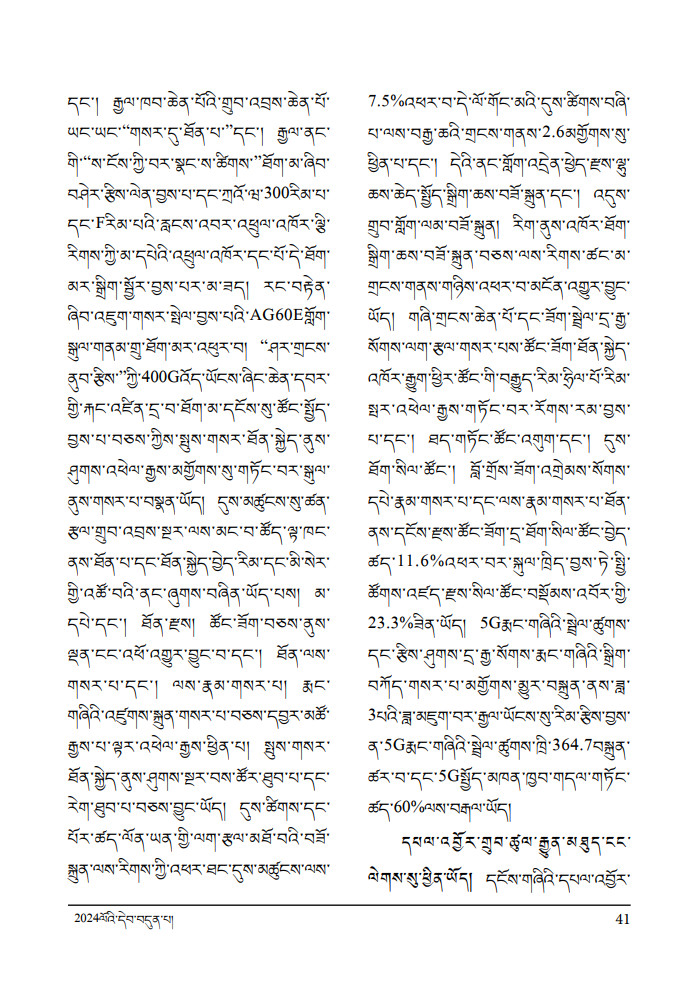 དང་། རྒྱལ་ཁབ་ཆེན་པོའི་གྲུབ་འབྲས་ཆེན་པོ་
ཡང་ཡང་“གསར་དུ་ཐོན་པ་”དང་། རྒྱལ་ནང་
གི་“ས་ངོས་ཀྱི་བར་སྣང་ས་ཚིགས་”ཐོག་མ་ཞིབ་
བཤེར་རྩིས་ལེན་བྱས་པ་དང་ཀྲའོ་ཝ་300རིམ་པ་
དང་Fརིམ་པའི་རླངས་འབར་འཕྲུལ་འཁོར་ལྕི་
རིགས་ཀྱི་མ་དཔེའི་འཕྲུལ་འཁོར་དང་པོ་དེ་ཐོག་
མར་སྒྲིག་སྦྱོར་བྱས་པར་མ་ཟད། རང་བརྟེན་
ཞིབ་འཇུག་གསར་སྤེལ་བྱས་པའི་AG60Eགློག་
སྒུལ་གནམ་གྲུ་ཐོག་མར་འཕུར་བ། “ཤར་གྲངས་
ནུབ་རྩིས་”ཀྱི་400Gའོད་ཡོངས་ཞིང་ཆེན་དབར་
གྱི་རྐང་འཛིན་དྲ་བ་ཐོག་མ་དངོས་སུ་ཚོང་སྤྱོད་
བྱས་པ་བཅས་ཀྱིས་སྤུས་གསར་ཐོན་སྐྱེད་ནུས་
ཤུགས་འཕེལ་རྒྱས་མགྱོགས་སུ་གཏོང་བར་སྒུལ་
ནུས་གསར་པ་བསྣན་ཡོད། དུས་མཚུངས་སུ་ཚན་
རྩལ་གྲུབ་འབྲས་སྔར་ལས་མང་བ་ཚོད་ལྟ་ཁང་
ནས་ཐོན་པ་དང་ཐོན་སྐྱེད་བྱེད་རིམ་དང་མི་སེར་
གྱི་འཚོ་བའི་ནང་ཞུགས་བཞིན་ཡོད་པས། མ་
དཔེ་དང་། ཐོན་རྫས། ཚོང་ཟོག་བཅས་ནུས་
ལྡན་ངང་འཕོ་འགྱུར་བྱུང་བ་དང་། ཐོན་ལས་
གསར་པ་དང་། ལས་རྣམ་གསར་པ། རྨང་
གཞིའི་འཛུགས་སྐྲུན་གསར་པ་བཅས་དབྱར་མཚོ་
རྒྱས་པ་ལྟར་འཕེལ་རྒྱས་ཕྱིན་པ། སྤུས་གསར་
ཐོན་སྐྱེད་ནུས་ཤུགས་སྔར་བས་ཚོར་ཐུབ་པ་དང་
རེག་ཐུབ་པ་བཅས་བྱུང་ཡོད། དུས་ཚིགས་དང་
པོར་ཚད་ལོན་ཡན་གྱི་ལག་རྩལ་མཐོ་བའི་བཟོ་
སྐྲུན་ལས་རིགས་ཀྱི་འཕར་ཐང་དུས་མཚུངས་ལས་
7.5%འཕར་བ་དེ་ལོ་གོང་མའི་དུས་ཚིགས་བཞི་
པ་ལས་བརྒྱ་ཆའི་གྲངས་གནས་2.6མགྱོགས་སུ་
ཕྱིན་པ་དང་། དེའི་ནང་གློག་འདྲེན་ཕྱེད་རྫས་ལྷུ་
ཆས་ཆེད་སྤྱོད་སྒྲིག་ཆས་བཟོ་སྐྲུན་དང་། འདུས་
གྲུབ་གློག་ལམ་བཟོ་སྐྲུན། རིག་ནུས་འཁོར་ཐོག་
སྒྲིག་ཆས་བཟོ་སྐྲུན་བཅས་ལས་རིགས་ཚང་མ་
གྲངས་གནས་གཉིས་འཕར་བ་མངོན་འགྱུར་བྱུང་
ཡོད། གཞི་གྲངས་ཆེན་པོ་དང་ཟོག་སྦྲེལ་དྲ་རྒྱ་
སོགས་ལག་རྩལ་གསར་པས་ཚོང་ཟོག་ཐོན་སྐྱེད་
འཁོར་རྒྱུག་ཕྱིར་ཚོང་གི་བརྒྱུད་རིམ་ཧྲིལ་པོ་རིམ་
སྤར་འཕེལ་རྒྱས་གཏོང་བར་རོགས་རམ་བྱས་
པ་དང་། ཐད་གཏོང་ཚོང་འགུག་དང་། དུས་
ཐོག་སིལ་ཚོང་། བློ་གྲོས་ཟོག་འགྲེམས་སོགས་
དཔེ་རྣམ་གསར་པ་དང་ལས་རྣམ་གསར་པ་ཐོན་
ནས་དངོས་རྫས་ཚོང་ཟོག་དྲ་ཐོག་སིལ་ཚོང་བྱེད་
ཚད་11.6%འཕར་བར་སྐུལ་ཁྲིད་བྱས་ཏེ་སྤྱི་
ཚོགས་འཛད་རྫས་སིལ་ཚོང་བསྡོམས་འབོར་གྱི་
23.3%ཟིན་ཡོད། 5Gརྨང་གཞིའི་སྦྲེལ་ཚུགས་
དང་རྩིས་ཤུགས་དྲ་རྒྱ་སོགས་རྨང་གཞིའི་སྒྲིག་
བཀོད་གསར་པ་མགྱོགས་མྱུར་བསྐྲུན་ནས་ཟླ་
3པའི་ཟླ་མཇུག་བར་རྒྱལ་ཡོངས་སུ་རིམ་རྩིས་བྱས་
ན་5Gརྨང་གཞིའི་སྦྲེལ་ཚུགས་ཁྲི་364.7བསྐྲུན་
ཚར་བ་དང་5Gསྤྱོད་མཁན་ཁྱབ་གདལ་གཏོང་
ཚད་60%ལས་བརྒལ་ཡོད།
དཔལ་འབྱོར་གྲུབ་ཚུལ་རྒྱུན་མཐུད་ངང་
ལེགས་སུ་ཕྱིན་ཡོད། དངོས་གཞིའི་དཔལ་འབྱོར་
2024ལོའི་དེབ་བདུན་པ། 41